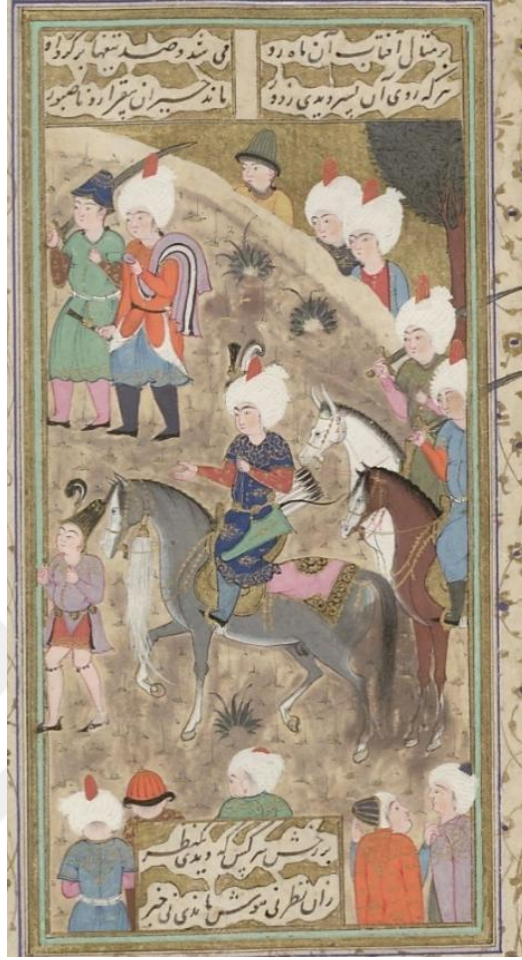 بر مثال آفتاب آن ماه رو می شد و صد تیغها بر گرد او
هر که روی آن پسر دیدی ز دور ماند حیران بیقرار و ناصبور
بر رخش هر کس که دیدی یکنظر
زان نظر نی هوش ماندی نی خبر